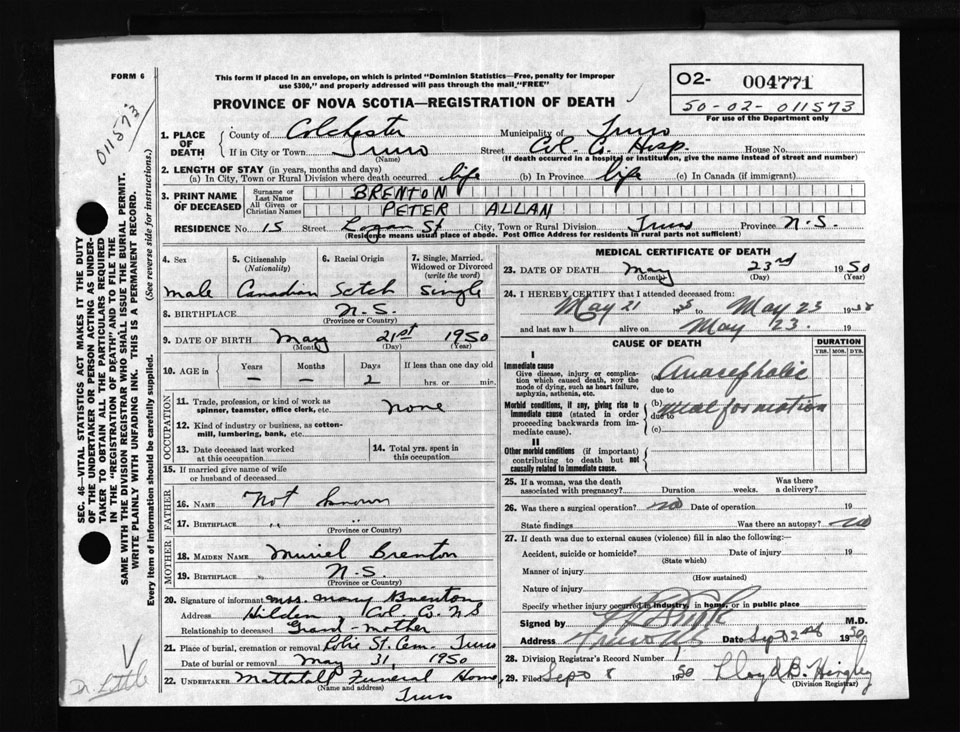 FORM 6
This form if placed in an envelope, on which is printed "Dominion Statistics—Free, penalty for improper
use $300," and properly addressed will pass through the mail "FREE"
O2- 004771
50-02-011573
For use of the Department only
PROVINCE OF NOVA SCOTIA—REGISTRATION OF DEATH
011573
1. PLACE OF DEATH
County of Colchester Municipality of Truro
If in City or Town Truro Street Col. Co. Hosp. House No.
(Name) (If death occurred in a hospital or institution, give the name instead of street and number)
2. LENGTH OF STAY (in years, months and days)
(a) In City, Town or Rural Division where death occurred life (b) In Province life (c) In Canada (if immigrant)
3. PRINT NAME OF DECEASED
Surname or Last Name BRENTON
All Given or Christian Names PETER ALLAN
RESIDENCE No. 15 Street Logan St City, Town or Rural Division Truro Province N.S.
(Residence means usual place of abode. Post Office Address for residents in rural parts not sufficient)
4. Sex 5. Citizenship (Nationality) 6. Racial Origin 7. Single, Married, Widowed or Divorced (write the word)
male Canadian Scotch Single
8. BIRTHPLACE N.S.
(Province or Country)
9. DATE OF BIRTH May 21st 1950
(Month) (Day) (Year)
10. AGE in Years Months Days If less than one day old
— — 2 hrs. or min.
OCCUPATION
11. Trade, profession, or kind of work as spinner, teamster, office clerk, etc. none
12. Kind of industry or business, as cotton-mill, lumbering, bank, etc.
13. Date deceased last worked at this occupation
14. Total yrs. spent in this occupation
15. If married give name of wife or husband of deceased
FATHER
16. NAME Not known
17. BIRTHPLACE " "
(Province or Country)
MOTHER
18. MAIDEN NAME Muriel Brenton
19. BIRTHPLACE N.S.
(Province or Country)
20. Signature of informant Mrs. Mary Brenton
Address Hilden, Col. Co. N S
Relationship to deceased Grand-mother
21. Place of burial, cremation or removal St. Cem. Truro
Date of burial or removal May 31, 1950
22. UNDERTAKER Mattatall Funeral Home
(Name and address)
Truro
MEDICAL CERTIFICATE OF DEATH
23. DATE OF DEATH May 23rd 1950
(Month) (Day)
24. I HEREBY CERTIFY that I attended deceased from:
May 21 19 to May 23 19
and last saw h alive on May 23. 19
CAUSE OF DEATH DURATION
YRS. MOS. DYS.
I
Immediate cause
Give disease, injury or complication which caused death, NOT the mode of dying, such as heart failure, asphyxia, asthenia, etc.
(a) Anacephalic
due to
Morbid conditions, if any, giving rise to immediate cause (stated in order proceeding backwards from immediate cause).
(b) malformation
due to
(c)
II
Other morbid conditions (if important) contributing to death but not causally related to immediate cause.
25. If a woman, was the death associated with pregnancy? Duration weeks. Was there a delivery?
26. Was there a surgical operation? no Date of operation 19
State findings Was there an autopsy? no
27. If death was due to external causes (violence) fill in also the following:—
Accident, suicide or homicide? Date of injury 19
(State which)
Manner of injury
(How sustained)
Nature of injury
Specify whether injury occurred in industry, in home, or in public place
Signed by M.D.
Address Truro NS Date Sept 2nd 1950
28. Division Registrar's Record Number
29. Filed Sept 8 1950 Lloyd B. Hingley
(Division Registrar)
SEC. 46—VITAL STATISTICS ACT MAKES IT THE DUTY
OF THE UNDERTAKER OR PERSON ACTING AS UNDERTAKER TO OBTAIN ALL THE PARTICULARS REQUIRED
IN THE "REGISTRATION OF DEATH" AND TO FILE THE
SAME WITH THE DIVISION REGISTRAR WHO SHALL ISSUE THE BURIAL PERMIT.
WRITE PLAINLY WITH UNFADING INK. THIS IS A PERMANENT RECORD.
Every item of information should be carefully supplied. (See reverse side for instructions.)
Dr. Little